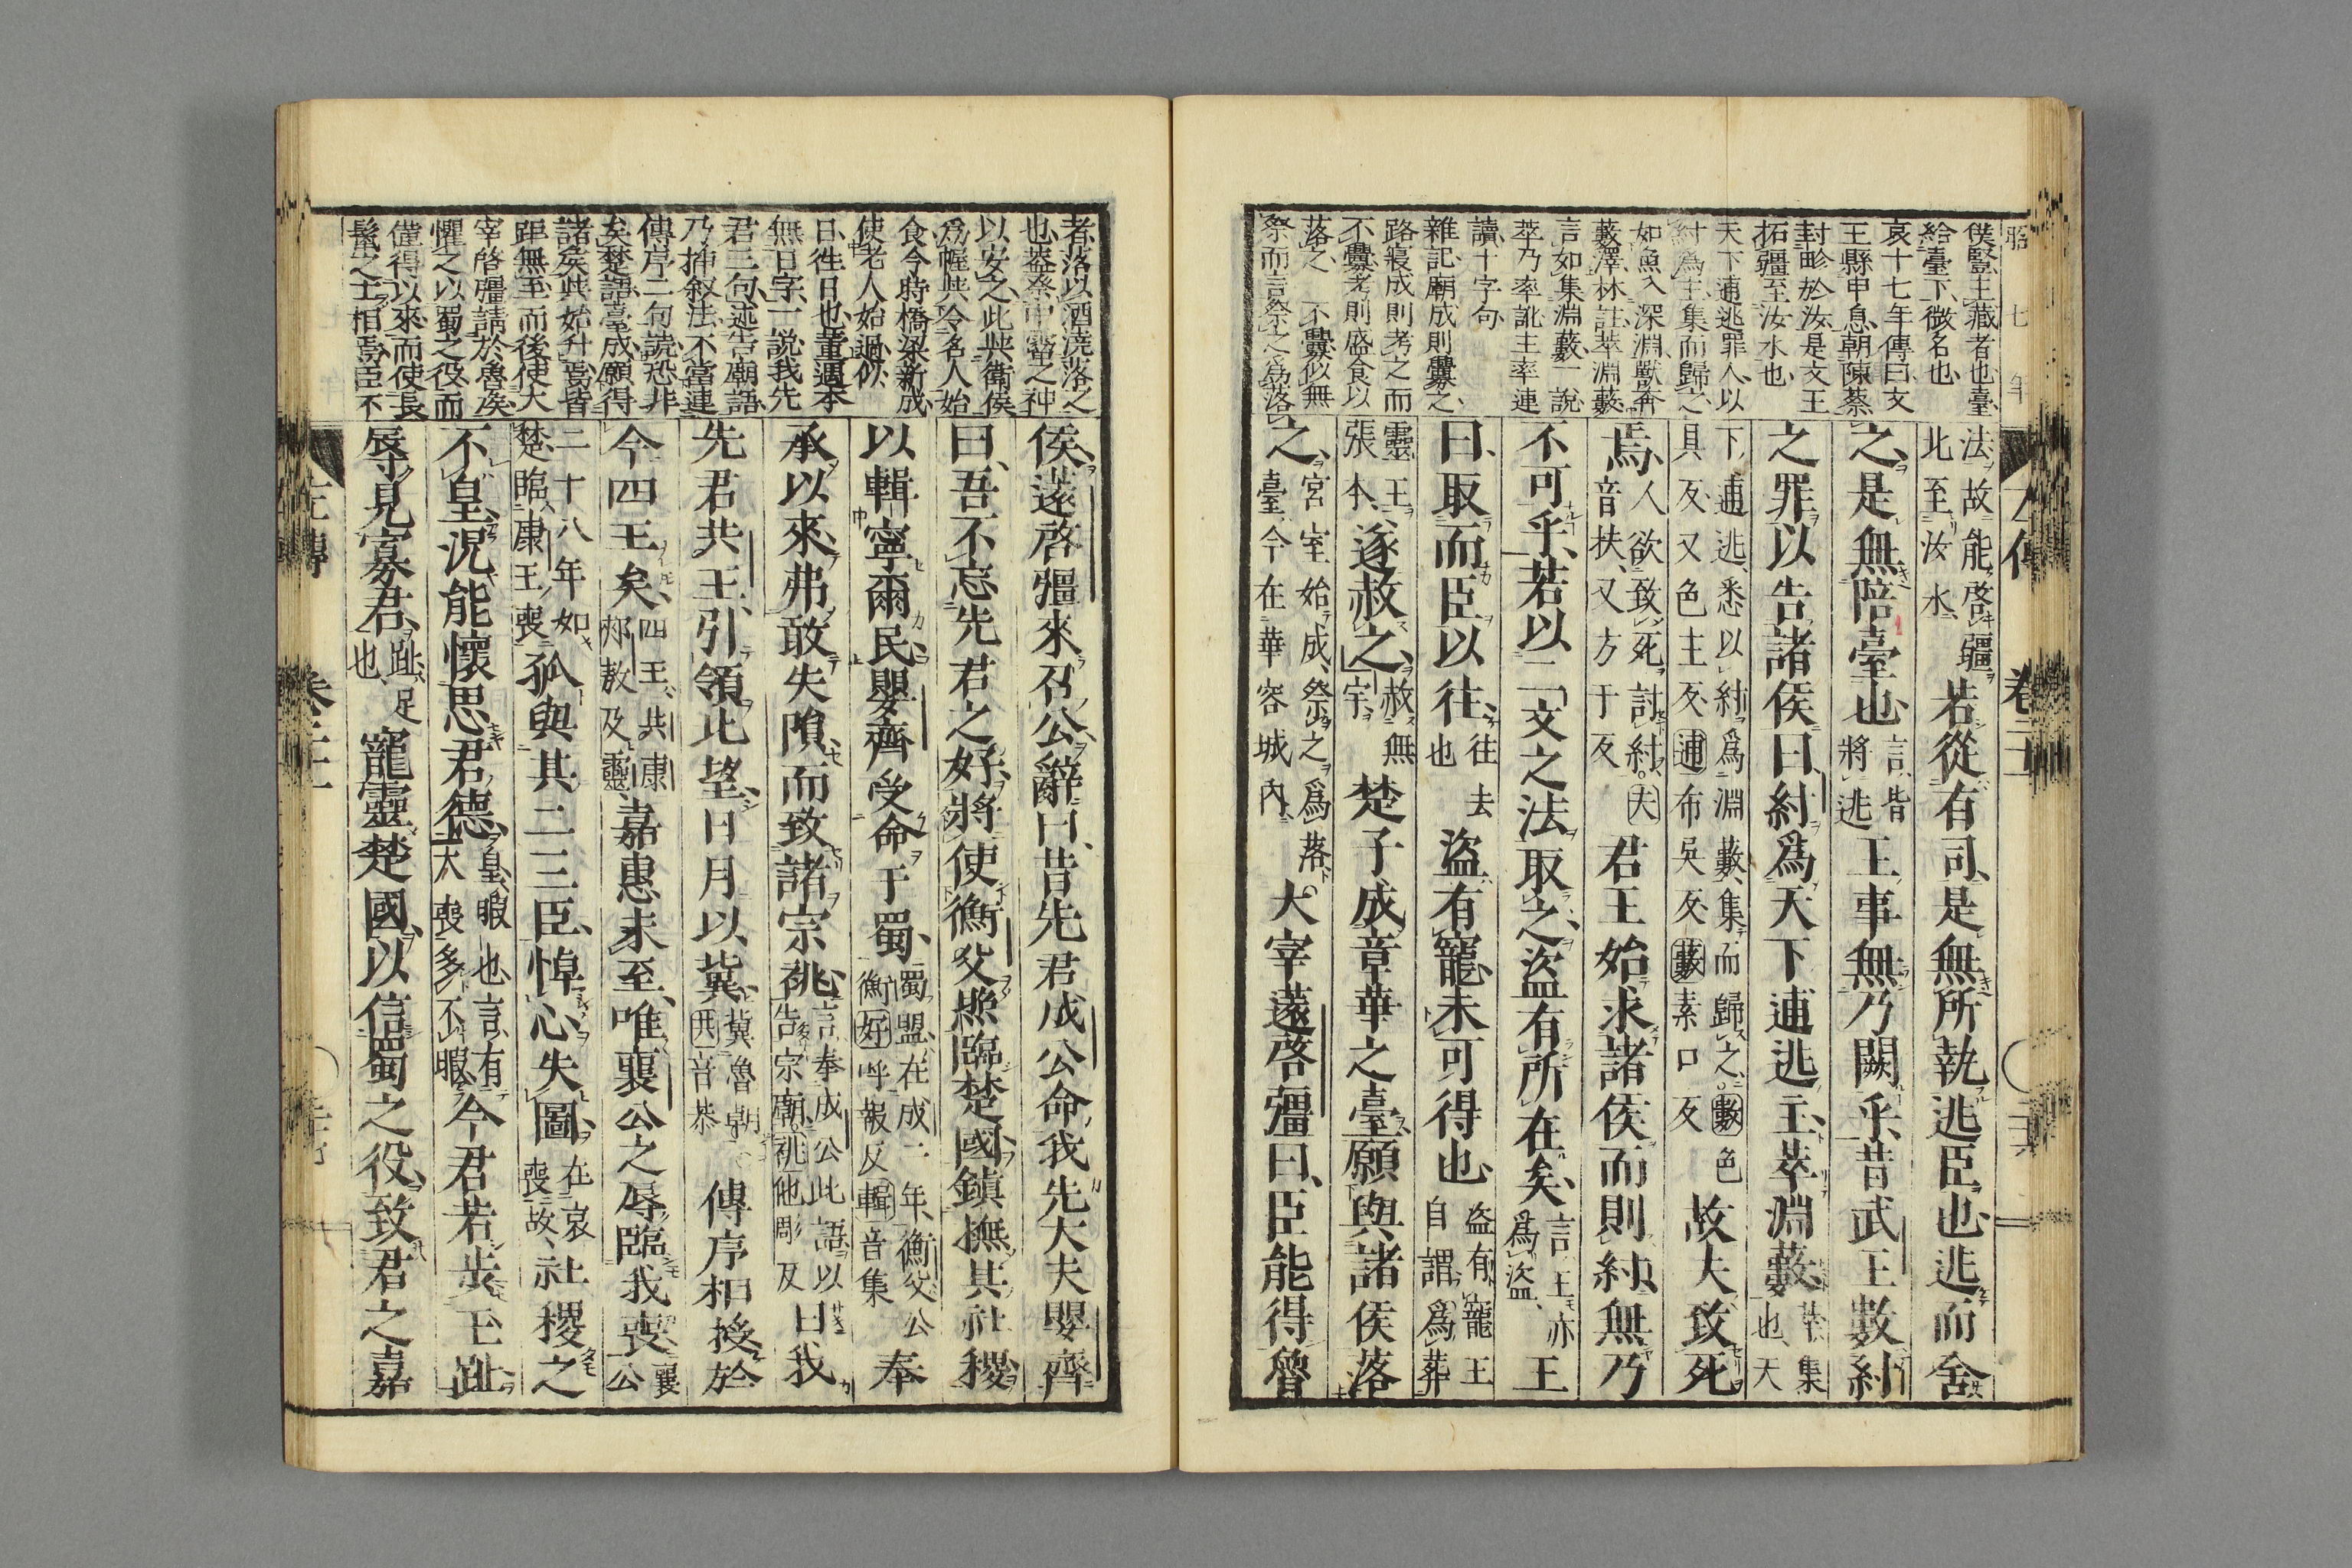 昭七年
僕豎主藏者也臺
給臺下微名也
哀十七年傳曰文
王縣申息朝陳蔡
封畛於汝是文王
拓疆至汝水也
天下逋逃罪人以
紂爲主集而歸之
如魚入深淵獸奔
藪澤林註萃淵藪
言如集淵藪一說
萃乃率訛主率連
讀十字句
雜記廟成則釁之
路寢成則考之而
不釁考則盛食以
落之 不釁似無
祭而言祭之爲落
法故能啓疆北至汝水若從有司是無所執逃臣也逃而舍
之是無陪臺也言皆將逃王事無乃闕乎昔武王數紂
之罪以告諸侯曰紂爲天下逋逃主萃淵藪萃集也天
下逋逃悉以紂爲淵藪集而歸之數色具反又色主反逋布吳反藪素口反故夫致死
焉人欲致死討紂夫音扶又方于反君王始求諸侯而則紂無乃
不可乎若以二文之法取之盜有所在矣言王亦爲盜王
曰取而臣以往往去也盜有寵未可得也盜有寵王自謂爲葬
靈王張本遂赦之赦無宇楚子成章華之臺願與諸侯落
之宮室始成祭之爲落臺今在華容城內大宰薳啓疆曰臣能得魯
者落以酒澆落之
也蓋祭中霤之神
以安之此與衛侯
爲幄與令名人始
食今時橋梁新成
使老人始過似
日徃日也董遇本
無日字一說我先
君三句述告廟語
乃挿敘法不當連
傳序二句說恐非
矣楚語臺成願得
諸矦與始升焉皆
距無至而後使大
宰啓疆請於魯矦
懼之以蜀之役而
僅得以來而使長
鬣之士相焉臣不
侯薳啓疆來召公辭曰昔先君成公命我先大夫嬰齊
曰吾不忘先君之好將使衡父照臨楚國鎮撫其社稷
以輯寧爾民嬰齊受命于蜀蜀盟在成二年衡父公衡好呼報反輯音集奉
承以來弗敢失隕而致諸宗祧言奉成公此語以告宗廟祧他彫反日我
先君共王引領北望日月以冀冀魯朝共音恭傳序相授於
今四王矣四王共康郟敖及靈嘉惠未至唯襄公之辱臨我喪襄公
二十八年如楚臨康王喪孤與其二三臣悼心失圖在哀喪故社稷之
不皇況能懷思君德皇暇也言有大喪多不暇今君若步玉趾
辱見寡君趾足也寵靈楚國以信蜀之役致君之嘉
左傳
卷二十一